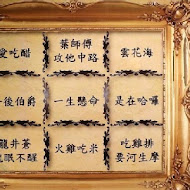 愛吃醋
葉師傅
攻他中路
雲花海
一後伯爵
一生懸命
是在哈囉
龍井蒼
龍眼不醒
火雞吃米
吃雞排
要河生摩